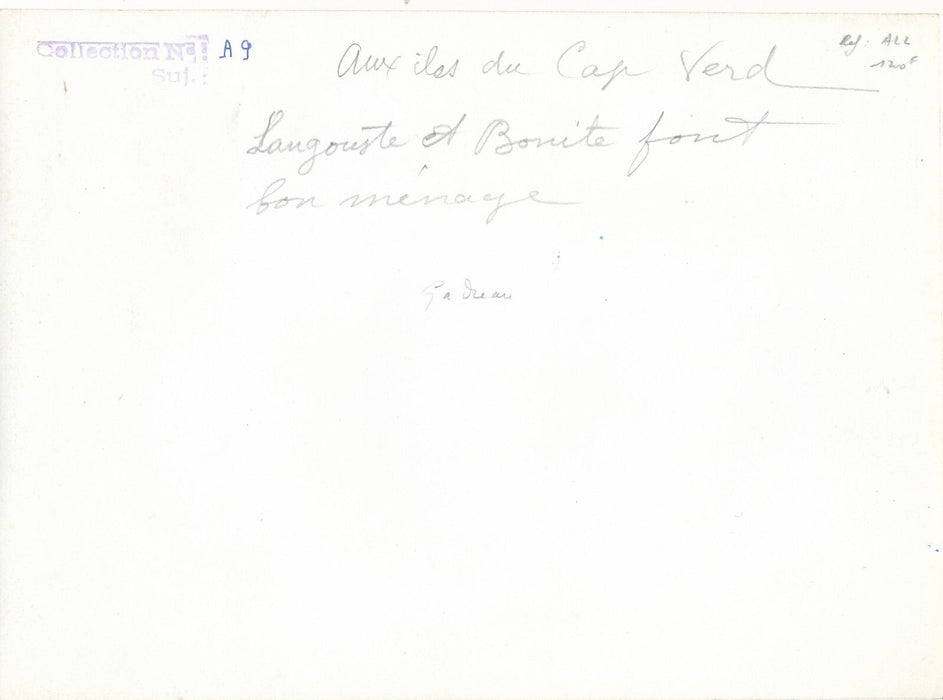 Collection Nº: A9
Suj.:
Aux iles du Cap Verd
Réf: ALL
Langouste et Bonite font
bon ménage